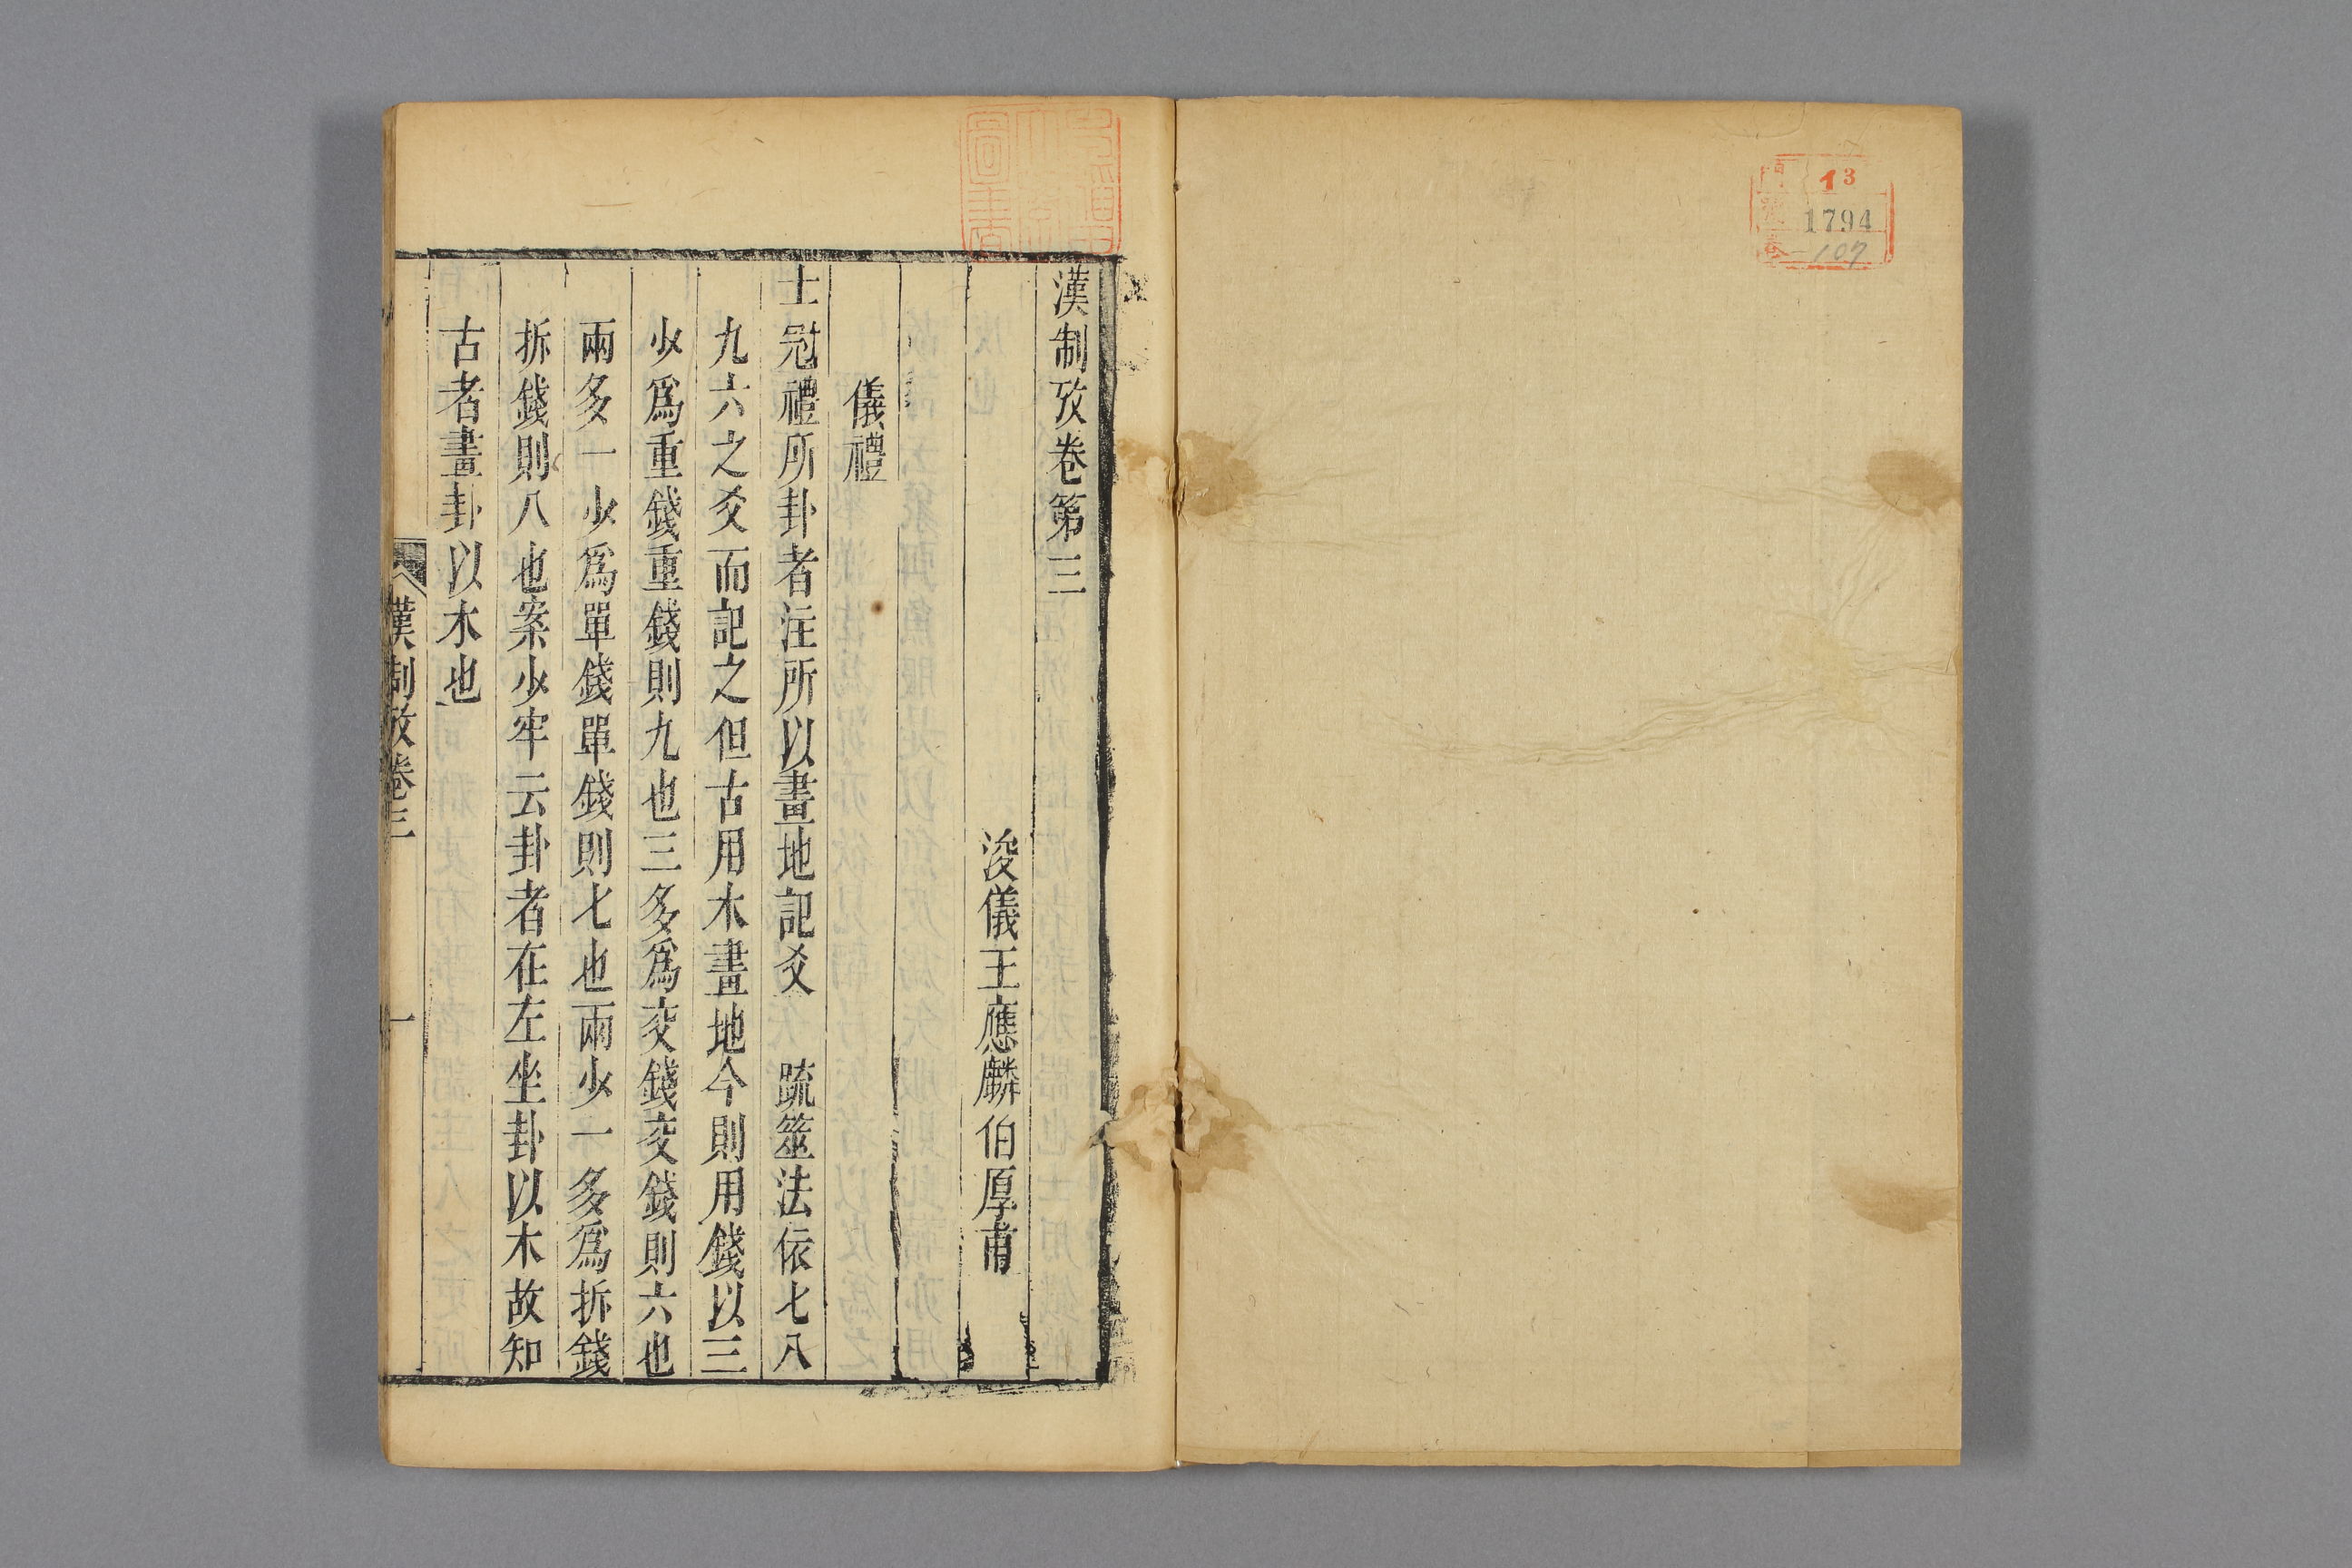 漢制攷卷第三
浚儀王應麟伯厚甫
儀禮
士冠禮所卦者注所以畫地記爻　疏筮法依七八
九六之爻而記之但古用木畫地今則用錢以三
少爲重錢重錢則九也三多爲交錢交錢則六也
兩多一少爲單錢單錢則七也兩少一多爲拆錢
拆錢則八也案少牢云卦者在左坐卦以木故知
古者畫卦以木也
漢制攷卷三
一
門
號
卷
13
1794
107